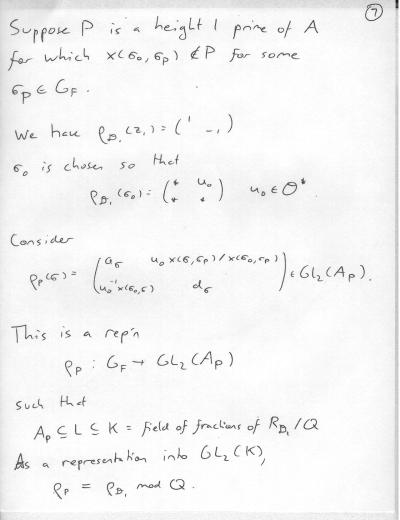 7
Suppose P is a height 1 prime of A
for which x(σ₀, σ_P) ∉ P for some
σ_P ∈ G_F.
We have ρ_𝒟₁(z₁) = (¹ ₋₁)
σ₀ is chosen so that
ρ_𝒟₁(σ₀) = (* u₀ ; * *) u₀ ∈ 𝒪*
Consider
ρ_P(σ) = (a_σ u₀ x(σ, σ_P)/x(σ₀, σ_P) ; u₀⁻¹ x(σ₀, σ) d_σ) ∈ GL₂(A_P).
This is a rep'n
ρ_P : G_F → GL₂(A_P)
such that
A_P ⊆ L ⊆ K = field of fractions of R_𝒟₁/Q
As a representation into GL₂(K),
ρ_P = ρ_𝒟₁ mod Q.